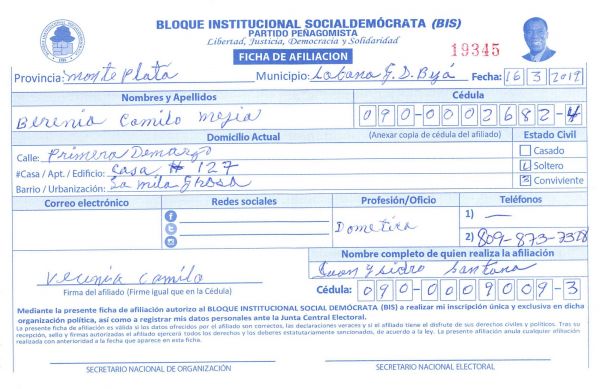 BLOQUE INSTITUCIONAL SOCIALDEMÓCRATA (BIS)
PARTIDO PEÑAGOMISTA
Libertad, Justicia, Democracia y Solidaridad
FICHA DE AFILIACION
19345
Provincia: Monte Plata Municipio: Sabana G. D. Boyá Fecha: 16 3 2019
Nombres y Apellidos Cédula
Berenia Camilo Mejia 090-0002682-4
Domicilio Actual (Anexar copia de cédula del afiliado) Estado Civil
Calle: Primera Demarzo Casado
#Casa / Apt. / Edificio: Casa # 127 Soltero
Barrio / Urbanización: La Mila Grosa Conviviente
Correo electrónico Redes sociales Profesión/Oficio Teléfonos
1) —
Dometica 2) 809-873-7378
Nombre completo de quien realiza la afiliación
Juan Ysidro Santana
Verinia Camilo
Firma del afiliado (Firme igual que en la Cédula) Cédula: 090-0009009-3
Mediante la presente ficha de afiliación autorizo al BLOQUE INSTITUCIONAL SOCIAL DEMÓCRATA (BIS) a realizar mi inscripción única y exclusiva en dicha
organización política, así como a registrar mis datos personales ante la Junta Central Electoral.
La presente ficha de afiliación es válida si los datos ofrecidos por el afiliado son correctos, las declaraciones veraces y si el afiliado tiene el disfrute de sus derechos civiles y políticos. Tras su
recepción, sello y firmas autorizadas el afiliado ejercerá todos los derechos y los deberes estatutariamente sancionados, de acuerdo a la ley. La presente afiliación anula cualquier afiliación
realizada con anterioridad a la fecha que aparece en esta ficha.
SECRETARIO NACIONAL DE ORGANIZACIÓN SECRETARIO NACIONAL ELECTORAL